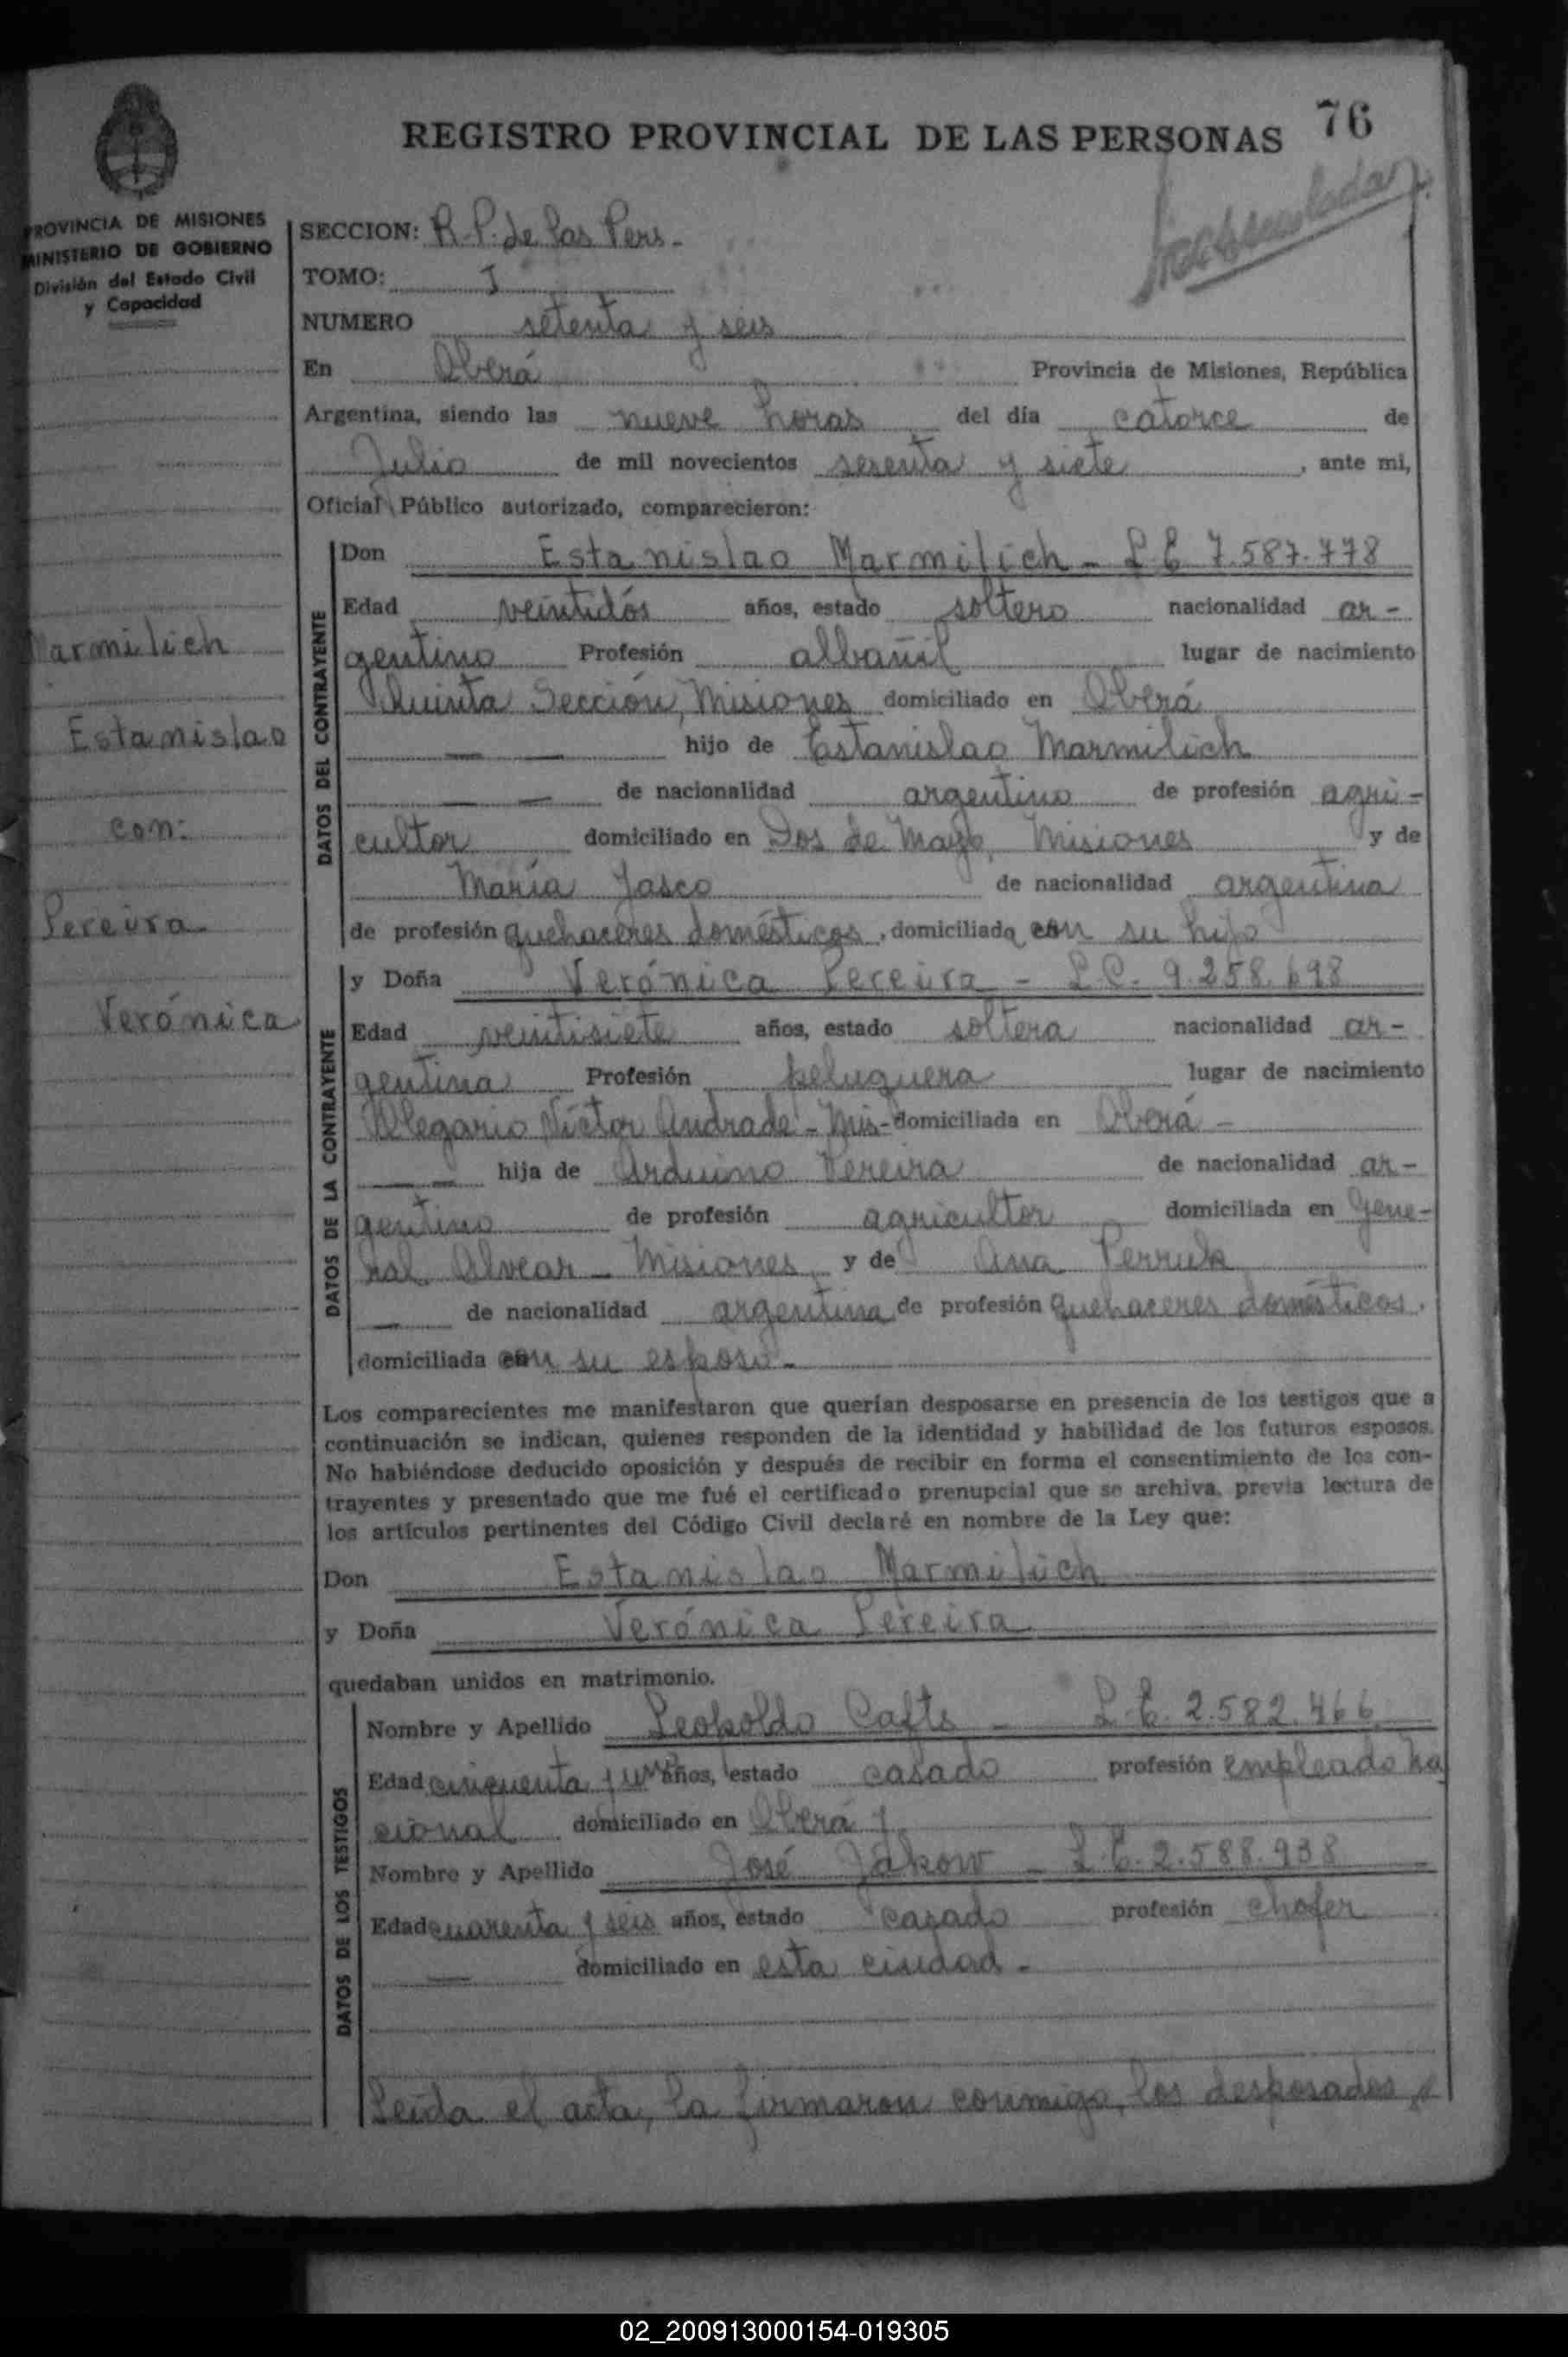 76
REGISTRO PROVINCIAL DE LAS PERSONAS
PROVINCIA DE MISIONES
MINISTERIO DE GOBIERNO
División del Estado Civil
y Capacidad
SECCION: R.P. de las Pers.-
TOMO: I
NUMERO setenta y seis
En Oberá Provincia de Misiones, República
Argentina, siendo las nueve horas del día catorce de
Julio de mil novecientos sesenta y siete, ante mi,
Oficial Público autorizado, comparecieron:
DATOS DEL CONTRAYENTE
Don Estanislao Marmilich - L.E 7.587.778
Edad veintidós años, estado soltero nacionalidad ar-
gentino Profesión albañil lugar de nacimiento
Quinta Sección, Misiones domiciliado en Oberá
— — hijo de Estanislao Marmilich
— — de nacionalidad argentino de profesión agri-
cultor domiciliado en Dos de Mayo, Misiones y de
María Jasco de nacionalidad argentina
de profesión quehaceres domésticos, domiciliada con su hijo
Marmilich
Estanislao
con:
Pereira
Verónica
DATOS DE LA CONTRAYENTE
y Doña Verónica Pereira - L.C. 9.258.698
Edad veintisiete años, estado soltera nacionalidad ar-
gentina Profesión peluquera lugar de nacimiento
Olegario Víctor Andrade - Mis- domiciliada en Oberá -
— — hija de Arduino Pereira de nacionalidad ar-
gentino de profesión agricultor domiciliada en Gene-
ral Alvear - Misiones y de Ana
— de nacionalidad argentina de profesión quehaceres domésticos,
domiciliada con su esposo.-
Los comparecientes me manifestaron que querían desposarse en presencia de los testigos que a
continuación se indican, quienes responden de la identidad y habilidad de los futuros esposos.
No habiéndose deducido oposición y después de recibir en forma el consentimiento de los con-
trayentes y presentado que me fué el certificado prenupcial que se archiva, previa lectura de
los artículos pertinentes del Código Civil declaré en nombre de la Ley que:
Don Estanislao Marmilich
y Doña Verónica Pereira
quedaban unidos en matrimonio.
DATOS DE LOS TESTIGOS
Nombre y Apellido Leopoldo - L.E. 2.582.466
Edad cincuenta y un años, estado casado profesión empleado na
cional domiciliado en Oberá y
Nombre y Apellido José Jakow - L.E. 2.588.938
Edad cuarenta y seis años, estado casado profesión chofer
— domiciliado en esta ciudad.-
Leída el acta, la firmaron conmigo, los desposados
02_200913000154-019305